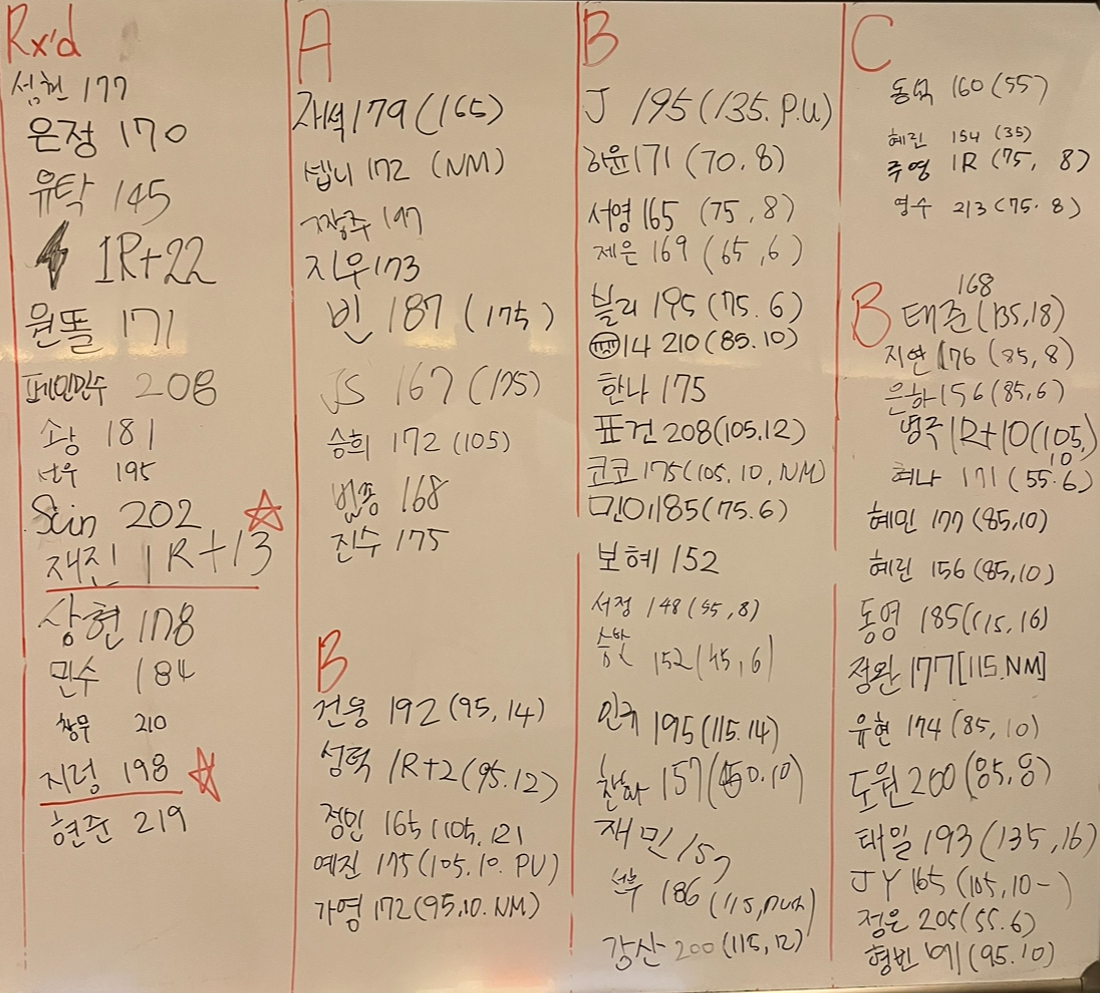 Rx'd
섬현 177
은정 170
유탁 145
1R+22
원똘 171
페인민수 208
소왕 181
선우 195
Scin 202
재진 1R+13
상현 178
민수 184
창우 210
지렁 198
현준 219
A
재석 179 (165)
셉니 172 (NM)
짱주
지우 173
빈 187 (175)
JS 167 (125)
승희 172 (105)
범종 168
진수 175
B
건웅 192 (95, 14)
성력 1R+2 (95.12)
정민 165 (105, 12)
예진 175 (105.10. PU)
가영 172 (95,10. NM)
B
J 195 (135. P.U)
하윤 171 (70, 8)
서영 165 (75, 8)
제은 169 (65, 6)
블리 195 (75. 6)
14 210 (85.10)
한나 175
표건 208 (105.12)
코코 175 (105, 10, NM)
민이 185 (75.6)
보혜 152
서정 148 (55, 8)
152 (45, 6)
인규 195 (115.14)
찬화 157
재민
선우 186
강산 200 (115, 12)
C
동석 160 (55)
혜린 154 (35)
주영 1R (75, 8)
영수 213 (75. 8)
B
168
태준 (135, 18)
지연 176 (85, 8)
은하 156 (85, 6)
병주 1R+10 (105,
10)
혀나 171 (55. 6)
혜민 177 (85,10)
혜린 156 (85,10)
동영 185 (115, 16)
정완 177 [115. NM]
유현 174 (85, 10)
도원 200 (85, 8)
태일 193 (135, 16)
JY 165 (105, 10-)
정은 205 (55.6)
형빈 (95.10)